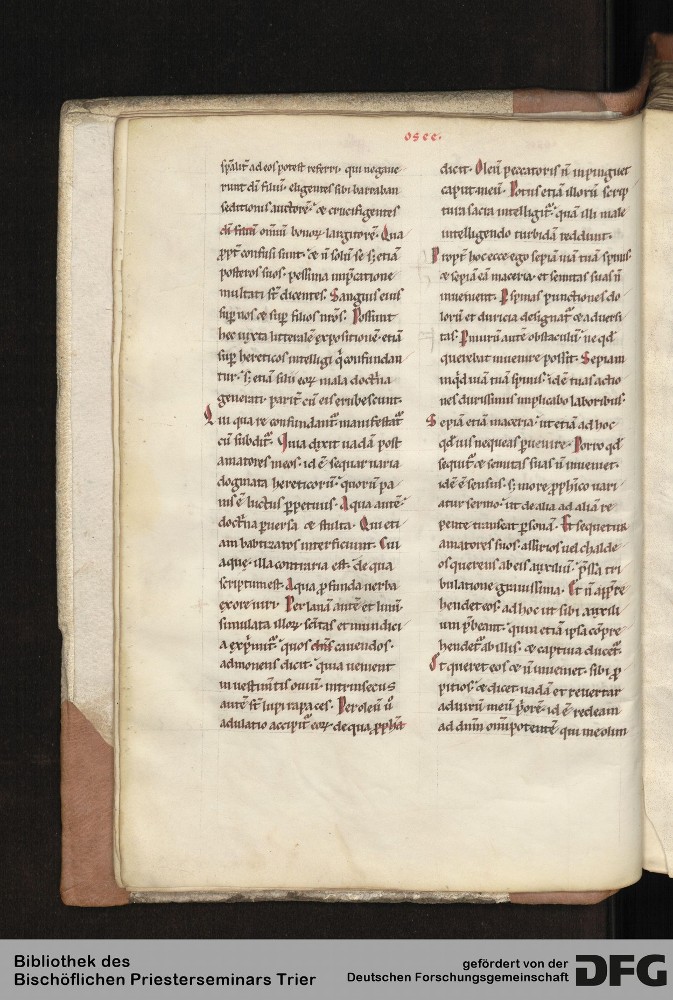 osee.
sp̄alit̄ ad eos potest referri. qui negaue
runt dn̄i filiū. eligentes sibi barraban
seditionis auctorē. & crucifigentes
dn̄i filiū omniū bonoꝝ largitorē. Qua
ꝓpt̄ confusi sunt. & n̄ solū se s; etiā
posteros suos. pessima imp̄catione
multati st̄ dicentes. Sanguis eius
sup̄ nos & sup̄ filios nr̄os. Possunt
hec iuxta litteralē expositionē. etiā
sup̄ hereticos intelligi q̄ confundan
tur. s; etiā filii eoꝝ mala doctͥna
generati. parit̄ cū eis erubescunt.
Qui qua re confundant̄. manifestat̄
cū subdit̄. Quia dixit uadā post
amatores meos. id ē sequar uaria
dogmata hereticorū. quorū pa
nis ē luctus ꝑpetuus. Aqua autē.
doctͥna ꝑuersa & stulta. Qui eti
am babtizatos interficiunt. Cui
aquę. illa contraria est. de qua
scriptum est. Aqua ꝓfunda uerba
ex ore uiri. Per lanā autē et linū.
simulata illoꝝ scītas et mundici
a exp̄mit̄. quos dn̄s cauendos.
admonens dicit. quia ueniunt
in uestim̄tis ouiū. intrinsecus
autē st̄ lupi rapaces. Per oleū u͛
adulatio accipit̄ eoꝝ. de qua ꝓph̄a
dicit. Oleū peccatoris n̄ inpinguet
caput meū. Potus etiā illorū scrip
tura sacra intelligit̄. quā illi male
intelligendo turbidā reddunt.
Propt̄ hoc ecce ego sepiā uiā tuā spinis.
& sepiā eā maceria. et semitas suas n̄
inuenient. Per spinas punctiones do
lorū et duricia designat̄ & aduersi
tas. Per murū autē obstaculū. ne qd̄
querebat inuenire possit. Sepiam
inq̇d uiā tuā spinis. idē tuas actio
nes durissimis implicabo laboribus.
Sepiā etiā maceria. ut etiā ad hoc
qd̄ uis nequeas ꝑuenire. Porro qd̄
sequit̄. & semitas suas n̄ inueniet.
idē ē sensus. s; more ꝓph̄ico uari
atur sermo. ut de alia ad aliā re
pente transeat ꝑsonā. Et sequetur
amatores suos. assirios uel chalde
os querens ab eis auxiliū. p̄ssa tri
bulatione grauissima. Et n̄ app̄re
hendet eos. ad hoc ut sibi auxili
um p̄beant. quin etiā ipsa cōpre
hendet̄ ab illis. & captiua ducet̄.
Et queret eos & n̄ inueniet. sibi ꝓ
pitios. & dicet uadā et reuertar
ad uirū meū p̄orē. id ē redeam
ad dn̄m omīpotentē qui me olim
Bibliothek des
Bischöflichen Priesterseminars Trier
gefördert von der
Deutschen Forschungsgemeinschaft
DFG